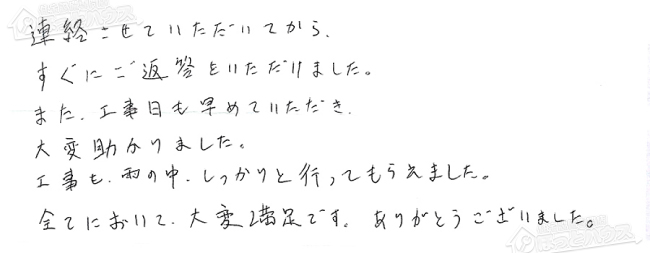 連絡させていただいてから、
すぐにご返答をいただけました。
また、工事日も早めていただき、
大変助かりました。
工事も、雨の中、しっかりと行ってもらえました。
全てにおいて、大変満足です。ありがとうございました。